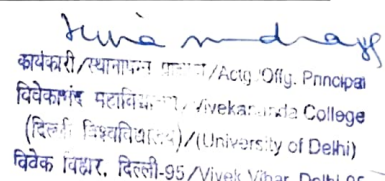 कार्यकारी/स्थानापन्न /Actg./Offg. Principal
विवेकानंद महाविद्यालय/Vivekananda College
(दिल्ली विश्वविद्यालय)/(University of Delhi)
विवेक विहार, दिल्ली-95/Vivek Vihar, Delhi-95